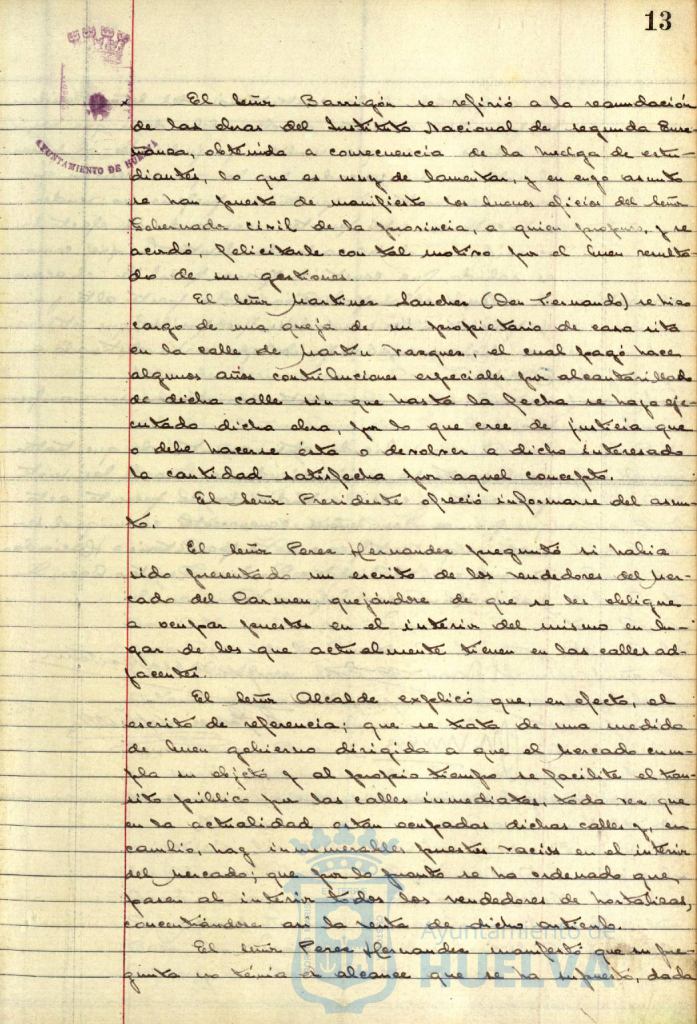 13
AYUNTAMIENTO DE HUELVA
El Señor Barrigón se refirió a la reanudación
de las obras del Instituto Nacional de segunda Ense-
ñanza, obtenida a consecuencia de la huelga de estu-
diantes, lo que es muy de lamentar, y en cuyo asunto
se han puesto de manifiesto los buenos oficios del Señor
Gobernador civil de la provincia, a quien propuso, y se
acordó, felicitarle con tal motivo por el buen resulta-
do de sus gestiones.
El Señor Martinez Sanchez (Don Fernando) se hizo
cargo de una queja de un propietario de casa sita
en la calle de Martin Vazquez, el cual pagó hace
algunos años contribuciones especiales por alcantarillado
de dicha calle sin que hasta la fecha se haya eje-
cutado dicha obra, por lo que cree de justicia que
o debe hacerse ésta o devolver a dicho interesado
la cantidad satisfecha por aquel concepto.
El Señor Presidente ofreció informarse del asun-
to.
El Señor Perez Hernandez preguntó si habia
sido presentado un escrito de los vendedores del Mer-
cado del Carmen quejándose de que se les obligue
a ocupar puestos en el interior del mismo en lu-
gar de los que actualmente tienen en las calles ad-
yacentes.
El Señor Alcalde explicó que, en efecto, el
escrito de referencia; que se trata de una medida
de buen gobierno dirigida a que el Mercado cum-
pla su objeto y al propio tiempo se facilite el tran-
sito público por las calles inmediatas, toda vez que
en la actualidad estan ocupadas dichas calles y, en
cambio, hay innumerables puestos vacios en el interior
del Mercado; que por lo pronto se ha ordenado que
pasen al interior todos los vendedores de hortalizas,
concentrándose asi la venta de dicho articulo.
El Señor Perez Hernandez manifestó que su pre-
gunta no tenia el alcance que se ha supuesto, dada
Ayuntamiento de
HUELVA